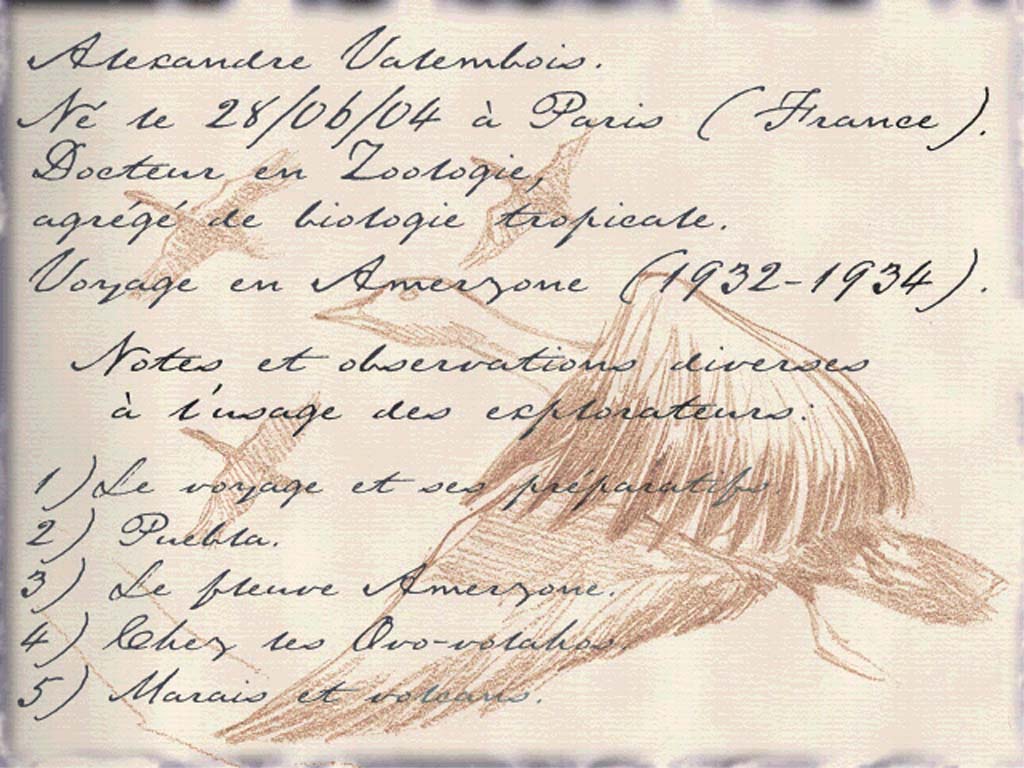 Alexandre Valembois.
Né le 28/06/04 à Paris (France).
Docteur en Zoologie,
agrégé de biologie tropicale.
Voyage en Amerzone (1932-1934).
Notes et observations diverses
à l'usage des explorateurs:
1) Le voyage et ses préparatifs.
2) Puebla.
3) Le fleuve Amerzone.
4) Chez les Ovo-volahos.
5) Marais et volcans.